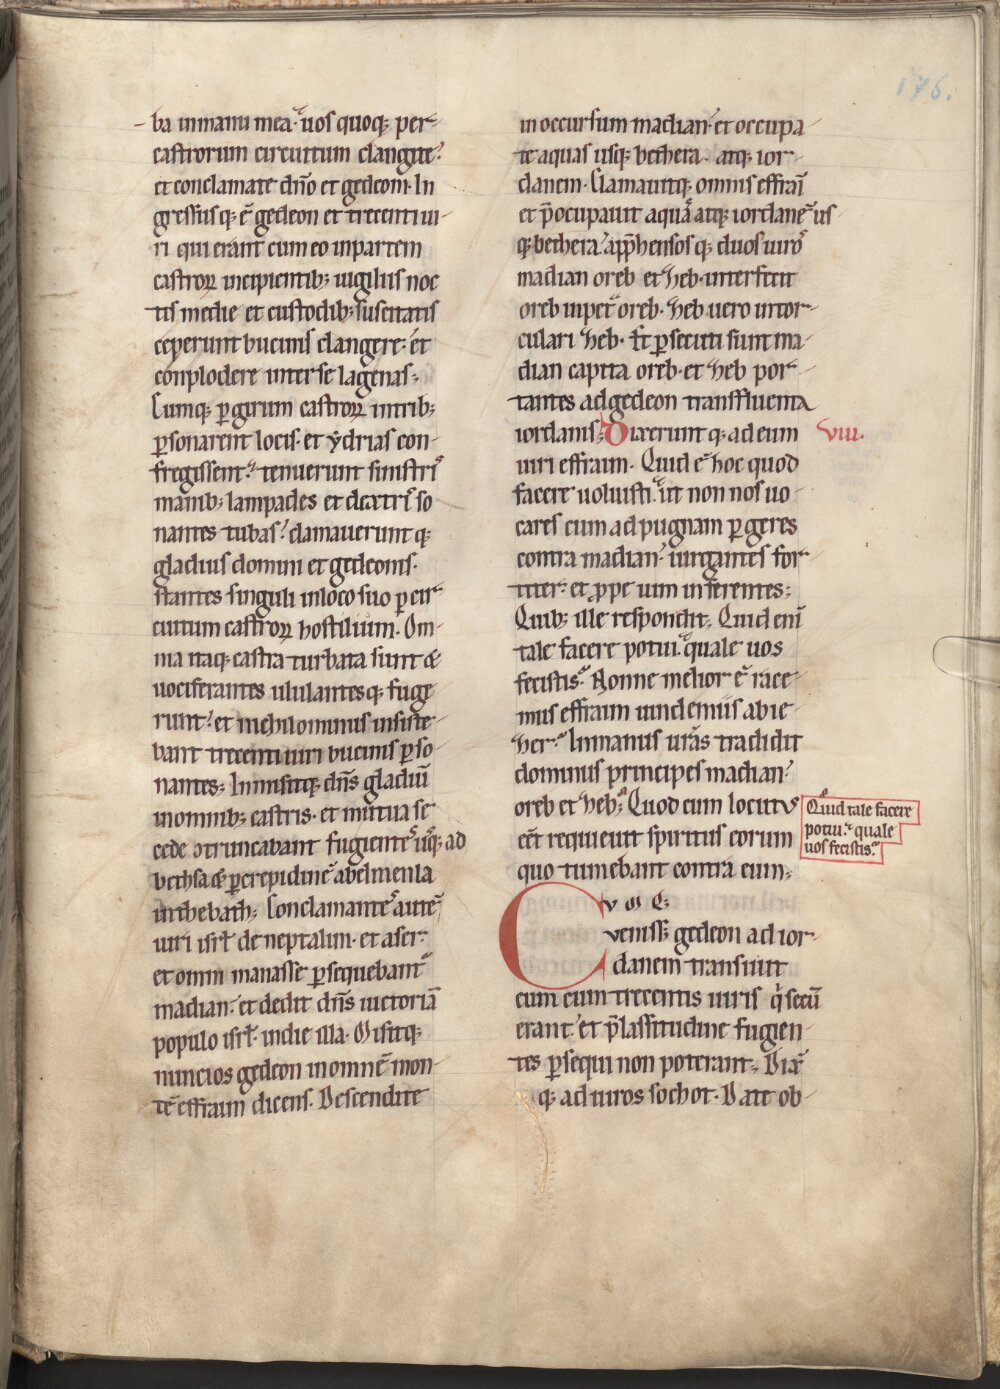 176.
ba inmanu mea. uos quoq; per
castrorum circuitum clangite.
et conclamate dño et gedeoni. In
gressusq; ē gedeon et trecenti ui
ri qui erant cum eo inpartem
castroꝝ incipientib; uigiliis noc
tis medie et custodib; suscitatis
ceperunt bucinis clangere. et
conplodere interse lagenas.
Cumq; ꝑ girum castroꝝ intrib;
ꝑsonarent locis. et ydrias con
fregissent. tenuerunt sinistrꝭ
manib; lampades et dextrꝭ so
nantes tubas. clamauerunt q;
gladius domini et gedeonis.
stantes singuli inloco suo ꝑ cir
cuitum castroꝝ hostilium. Om
nia itaq; castra turbata sunt &
uociferantes ululantesq; fuge
runt. et nichilominus insiste
bant trecenti uiri bucinis ꝑso
nantes. Inmisitq; dñs gladiū
inomnib; castris. et mutua se
cede otruncabant fugientes usq; ad
bethsa& ꝑ crepidinē abelmeula
inthebath. Conclamantes autē
uiri isrł de neptalim. et aser.
et omni manasse ꝑsequebant᷑
madian. et dedit dñs uictoriā
populo isrł. indie illa. Misitq;
nuncios gedeon inomnē mon
tē effraim dicens. Descendite
in occursum madian. et occupa
te aquas usq; bethera. atq; ior
danem. Clamauitq; omnis effraī
et p̄ocupauit aquā atq; iordanē us
q; bethera. app̄hensosq; duos uiros
madian oreb et heb. interfecit
oreb inpetᷓ oreb. heb uero intor
culari heb. Et ꝑsecuti sunt ma
dian capita oreb. et heb por
tantes adgedeon transfluenta
iordanis. Dixeruntq; ad eum
viii.
uiri effraim. Quid ē hoc quod
facere uoluisti. ut non nos uo
cares cum ad pugnam ꝑgeres
contra madian. iurgantes for
titer. et ꝓpe uim inferentes.
Quib; ille respondit. Quid enī
tale facere potui. quale uos
fecistis. Nonne melior ē race
mus effraim uindemiis abie
her. Inmanus ur̄as tradidit
dominus principes madian.
oreb et heb. Quod cum locutus
eēt requieuit spiritus eorum
quo tumebant contra eum.
Quid tale facere
potui. quale
uos fecistis.
CVMQ;
uenisset gedeon ad ior
danem transiuit
eum cum trecentis uiris qͥ secū
erant. et p̄ lassitudine fugien
tes ꝑsequi non poterant. Dixit
q; ad uiros sochot. Date ob